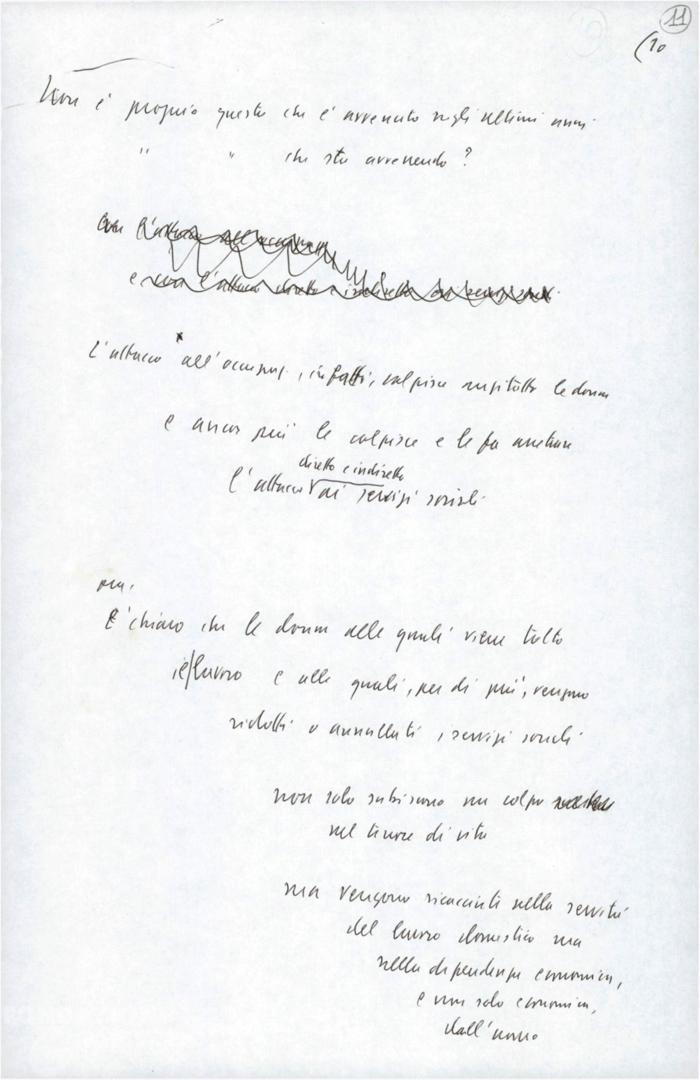 11
(10
Non è proprio questo che è avvenuto negli ultimi anni
" " che sta avvenendo?
con l'attacco all'occupaz.
e con l'attacco diretto e indiretto ai servizi sociali
L'attacco all'occupaz., infatti, colpisce anzitutto le donne
e ancor più le colpisce e le fa arretrare
diretto e indiretto
l'attacco ai servizi sociali
ma.
È chiaro che le donne alle quali viene tolto
il lavoro e alle quali, per di più, vengono
ridotti o annullati i servizi sociali
non solo subiscono un colpo
nel tenore di vita
ma vengono ricacciate nella servitù
del lavoro domestico ma
nella dipendenza economica,
e non solo economica,
dall'uomo